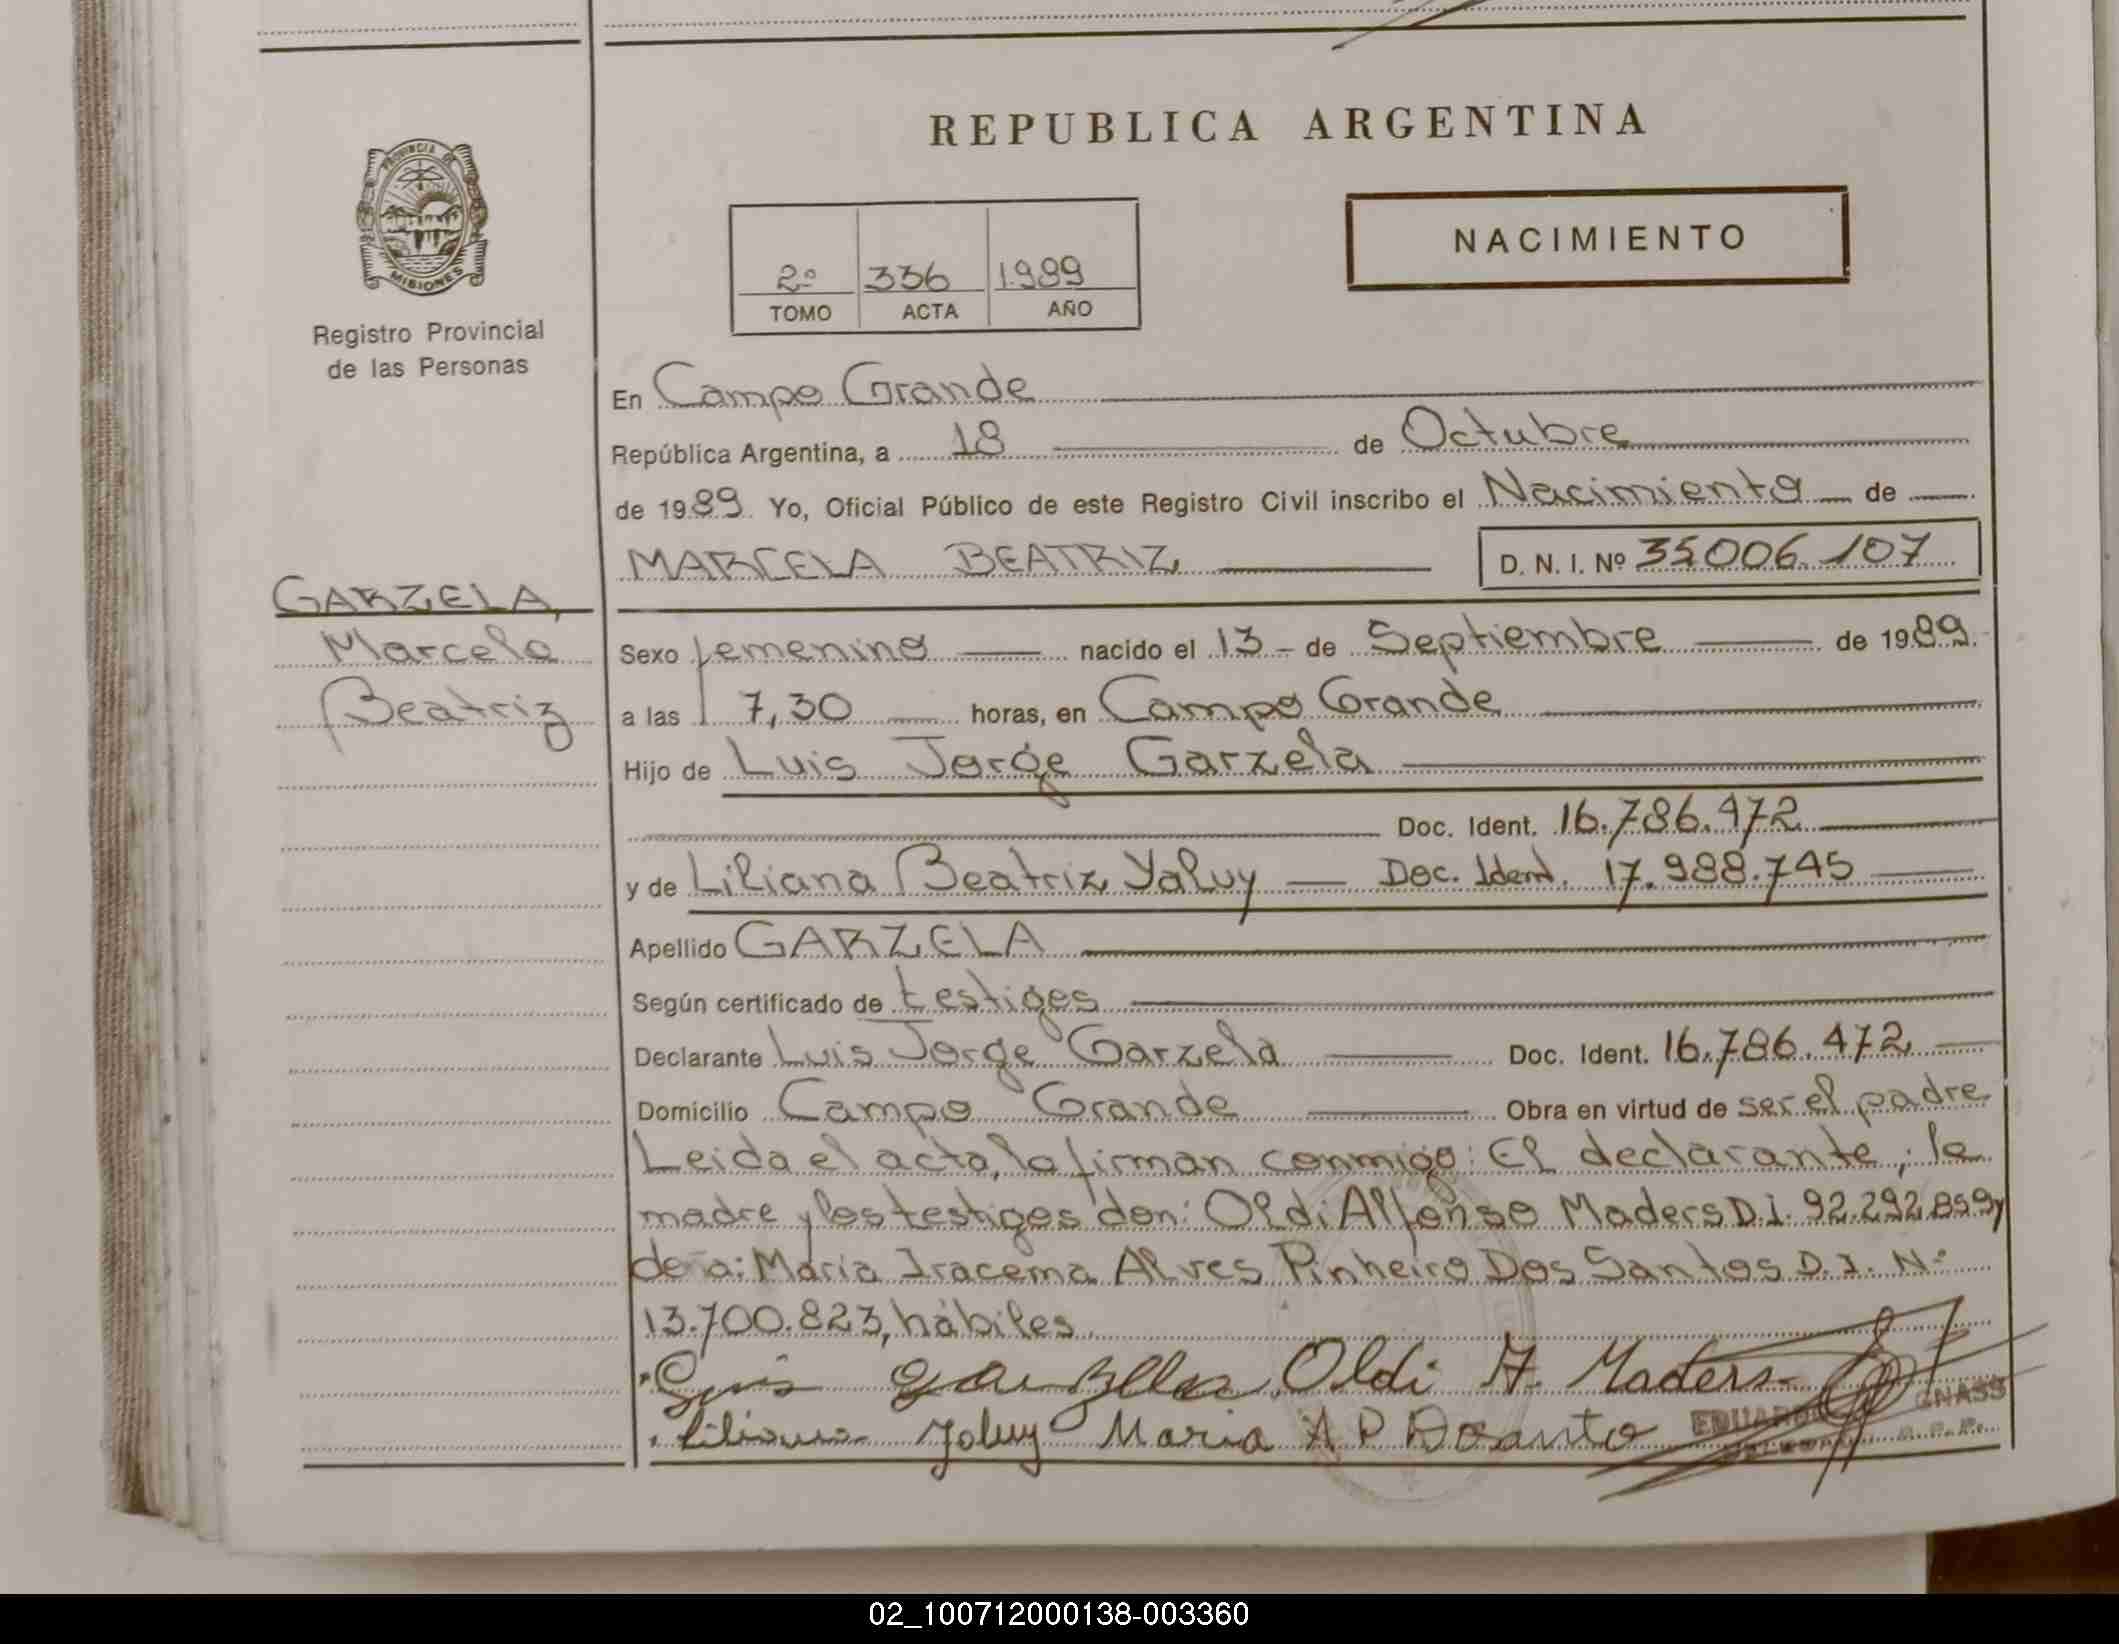 REPUBLICA ARGENTINA
PROVINCIA DE
MISIONES
Registro Provincial
de las Personas
NACIMIENTO
2º 336 1989
TOMO ACTA AÑO
En Campo Grande
República Argentina, a 18 de Octubre
de 1989 Yo, Oficial Público de este Registro Civil inscribo el Nacimiento de
MARCELA BEATRIZ D. N. I. Nº 35.006.107
GARZELA,
Marcela
Beatriz
Sexo femenino nacido el 13 - de Septiembre de 1989.
a las 7,30 horas, en Campo Grande
Hijo de Luis Jorge Garzela
Doc. Ident. 16.786.472
y de Liliana Beatriz Yaluy Doc. Ident. 17.988.745
Apellido GARZELA
Según certificado de testigos
Declarante Luis Jorge Garzela Doc. Ident. 16.786.472
Domicilio Campo Grande Obra en virtud de ser el padre
Leida el acta, la firman conmigo: El declarante, la
madre y los testigos don: Oldi Alfonso Maders D.I. 92.292.859 y
doña: Maria Iracema Alves Pinheiro Dos Santos D.I. Nº
13.700.823, hábiles.
Luis Garzella Oldi A. Maders
Liliana Yaluy Maria A P Dosanto EDUARDO
02_100712000138-003360